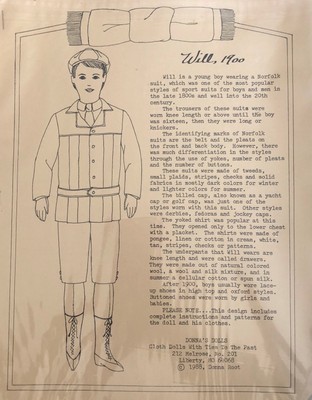 Will, 1900
Will is a young boy wearing a Norfolk
suit, which was one of the most popular
styles of sport suits for boys and men in
the late 1800s and well into the 20th
century.
The trousers of these suits were
worn knee length or above until the boy
was sixteen, then they were long or
knickers.
The identifying marks of Norfolk
suits are the belt and the pleats on
the front and back body. However, there
was much differentiation in the styles
through the use of yokes, number of pleats
and the number of buttons.
These suits were made of tweeds,
small plaids, stripes, checks and solid
fabrics in mostly dark colors for winter
and lighter colors for summer.
The billed cap, also known as a yacht
cap or golf cap, was just one of the
styles worn with this suit. Other styles
were derbies, fedoras and jockey caps.
The yoked shirt was popular at this
time. They opened only to the lower chest
with a placket. The shirts were made of
pongee, linen or cotton in cream, white,
tan, stripes, checks or patterns.
The underpants that Will wears are
knee length and were called drawers.
They were made out of natural colored
wool, a wool and silk mixture, and in
summer a cellular cotton or spun silk.
After 1900, boys usually wore lace-
up shoes in high top and oxford styles.
Buttoned shoes were worn by girls and
babies.
PLEASE NOTE...This design includes
complete instructions and patterns for
the doll and his clothes.
DONNA'S DOLLS
Cloth Dolls With Ties To The Past
212 Melrose, No. 201
Liberty, MO 64068
© 1988, Donna Root